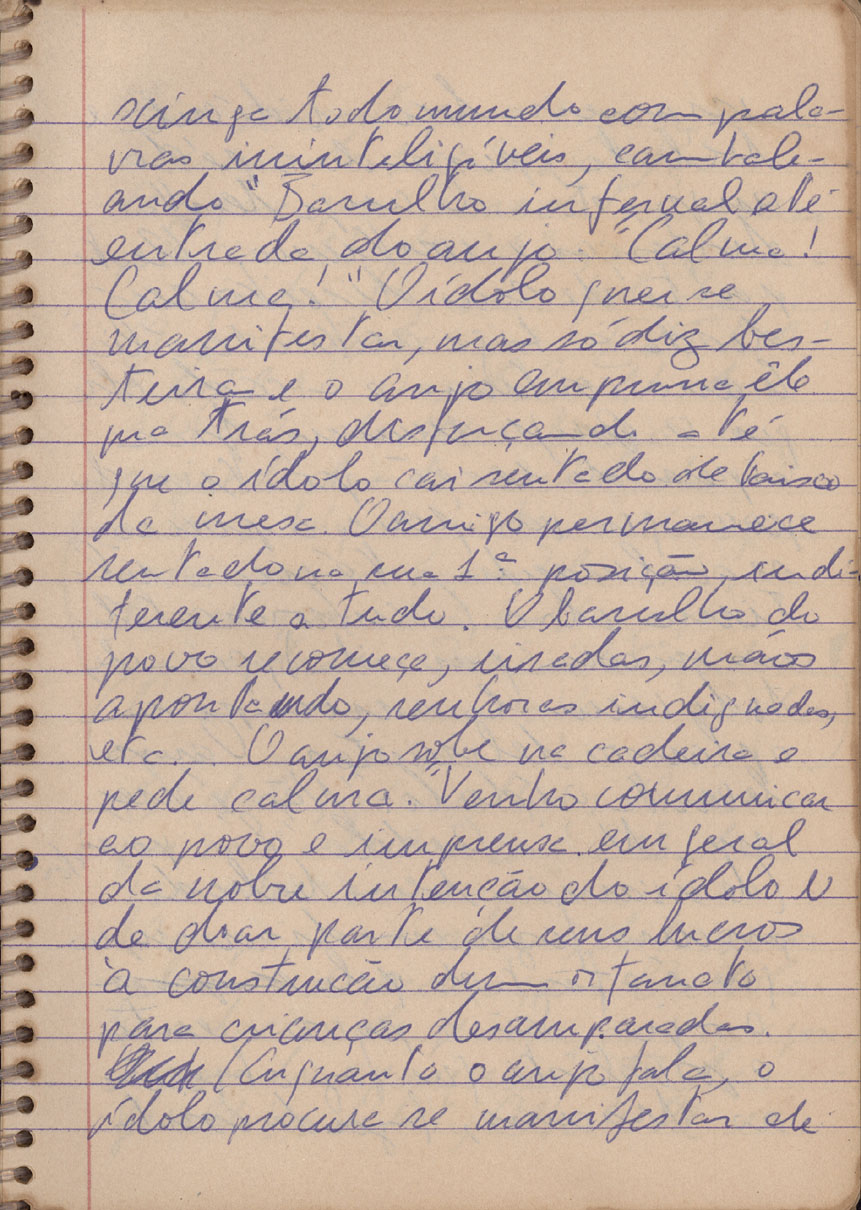 xinga todo mundo com pala-
vras ininteligíveis, cambale-
ando" Barulho infernal até
entrada do anjo: "Calma!
Calma!" O ídolo quer se
manifestar, mas só diz bes-
teira e o anjo empurra êle
pra trás, disfarçando até
que o ídolo cai sentado debaixo
da mesa. O amigo permanece
sentado na sua 1ª posição, indi-
ferente a tudo. O barulho do
povo recomeça, risadas, mãos
apontando, senhoras indignadas,
etc.. O anjo sobe na cadeira e
pede calma. "Venho comunicar
ao povo e imprensa em geral
da nobre intenção do ídolo
de doar parte de seus lucros
à construção dum orfanato
para crianças desamparadas.
(Enquanto o anjo fala, o
ídolo procura se manifestar de